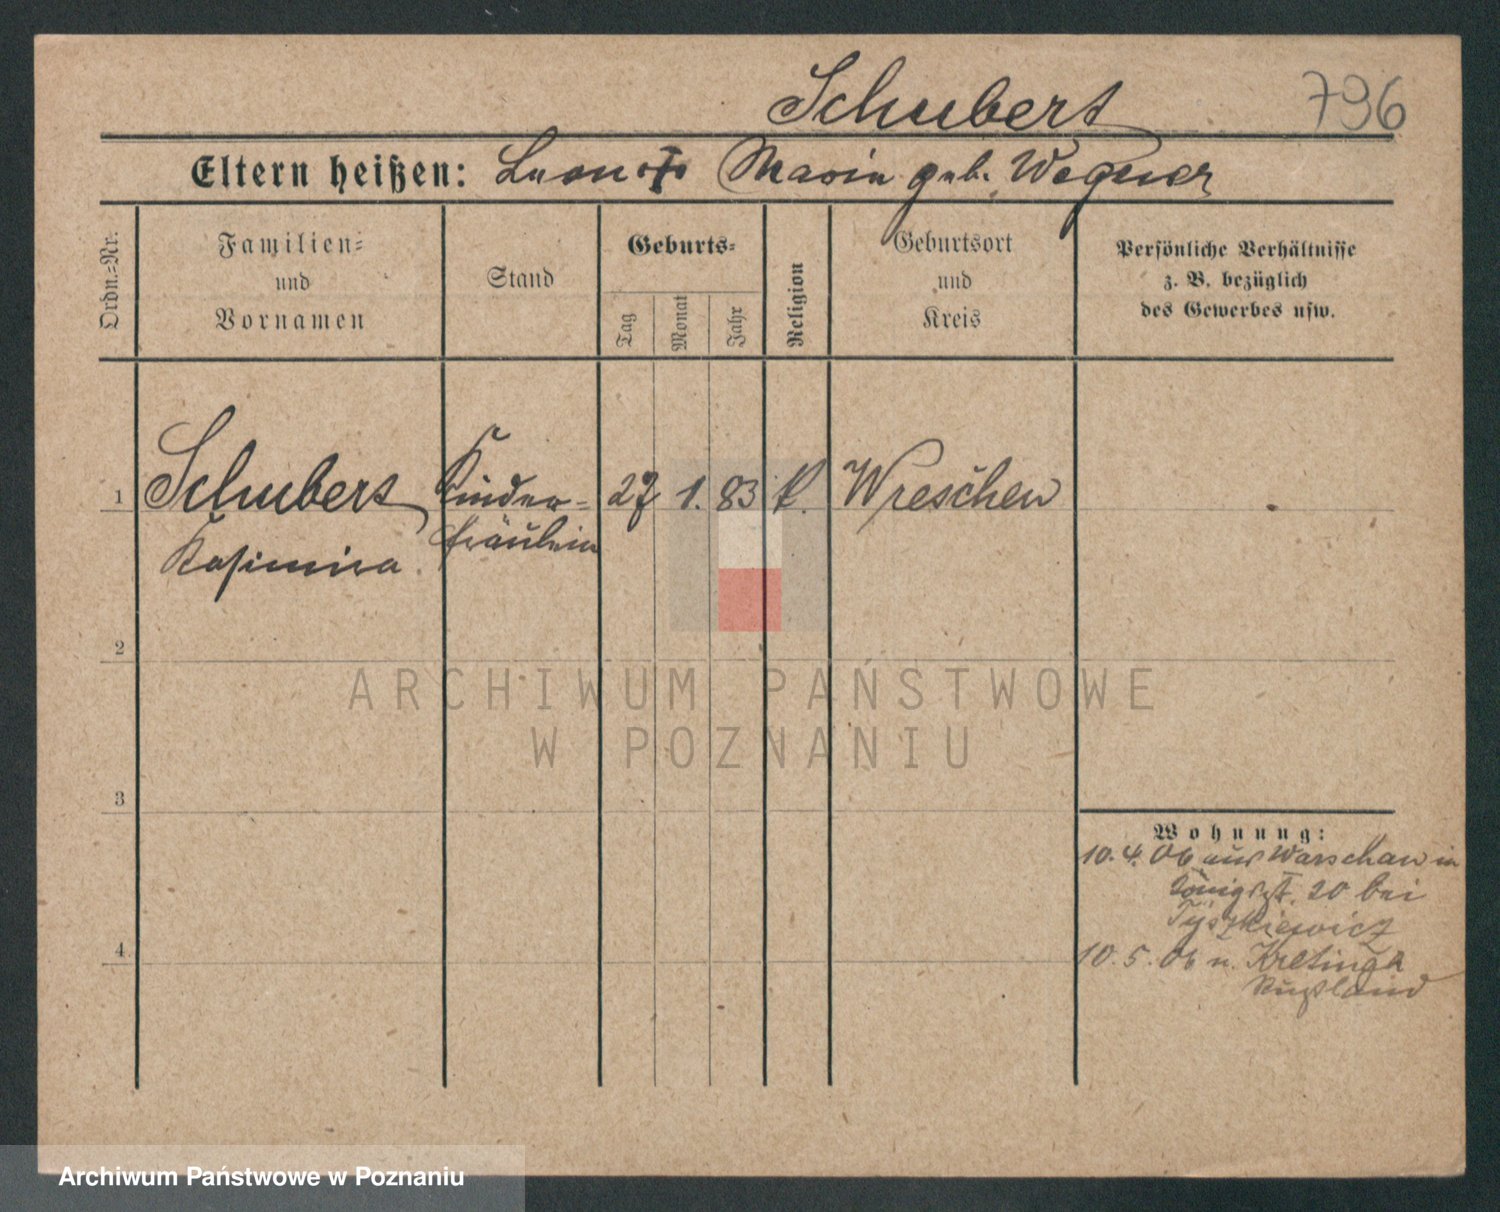 Schubert
796
Eltern heißen: Leon † Maria geb. Wegner
Ordn.-Nr.
Familien-
und
Vornamen
Stand
Geburts-
Tag
Monat
Jahr
Religion
Geburtsort
und
Kreis
Persönliche Verhältnisse
z. B. bezüglich
des Gewerbes usw.
1
Schubert
Kasimira
Kinder-
fräulein
27
1.
83
k.
Wreschen
2
3
4
Wohnung:
10.4.06 aus Warschau in
Königspl. 20 bei
Tyszkiewicz
10.5.06 n. Kretinga
Rußland
ARCHIWUM PAŃSTWOWE
W POZNANIU
Archiwum Państwowe w Poznaniu